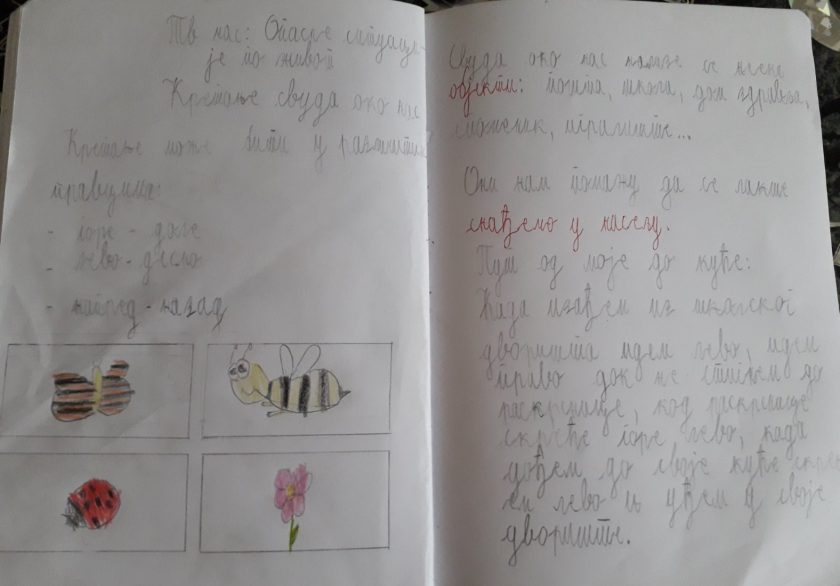 Тв час: Опасне ситуаци-
је по живот
Кретање свуда око нас
Кретање може бити у различитим
правцима:
- горе - доле
- лево - десно
- напред - назад
Свуда око нас налазе се неки
објекти: пошта, школа, дом здравља,
споменик, игралиште...
Они нам помажу да се лакше
снађемо у насељу.
Пут од моје до куће:
Када изађем из школског
дворишта идем лево, идем
право док не стигнем до
раскрснице, код раскрснице
скреће горе лево, када
дођем до своје куће скре-
ћем лево и уђем у своје
двориште.